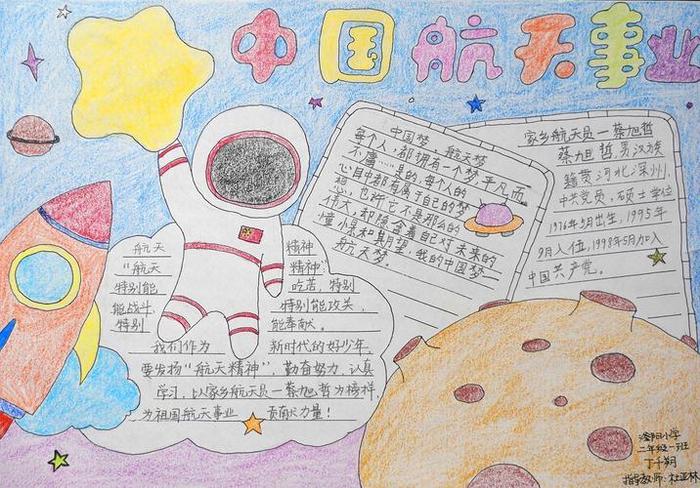 中国航天事业
中国梦，航天梦
每个人，都拥有一个梦，平凡而
不庸……是的，每个人的
心目中都有属于自己的梦
想，也许它不是那么的
伟大，却饱含着自己对未来的
憧憬和期望，我的中国梦
航天梦。
家乡航天员一蔡旭哲
蔡旭哲，男，汉族
籍贯河北深州，
中共党员，硕士学位
1976年5月出生，1995年
9月入伍，1998年5月加入
中国共产党。
航天 精神
"航天 精神"：
特别能 吃苦，特别
能战斗， 特别能攻关，
特别 能奉献。
我们作为 新时代的好少年，
要发扬"航天精神"，勤奋努力，认真
学习，以家乡航天员一蔡旭哲为榜样，
为祖国航天事业 贡献力量！
小学
二年级一班
丁千翔
指导教师：杜亚林